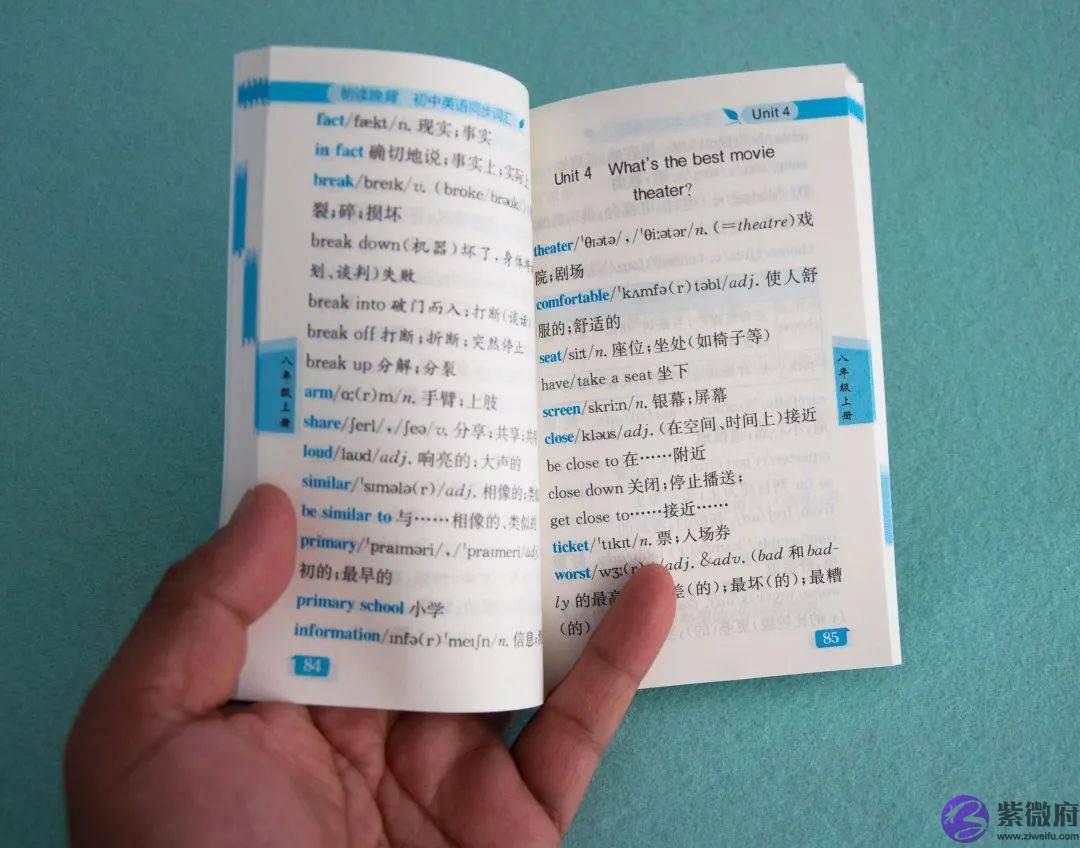 朝读晚背 初中英语同步词汇
fact/fækt/n. 现实;事实
in fact 确切地说;事实上;实际上
break/breɪk/v. (broke/brəʊk/)
裂;碎;损坏
break down(机器)坏了,身体
划、谈判)失败
break into 破门而入;打断(谈话)
break off 打断;折断;突然停止
break up 分解;分裂
arm/ɑː(r)m/n. 手臂;上肢
share/ʃerl/,/ʃeə/v. 分享;共享;共
loud/laʊd/adj. 响亮的;大声的
similar/'sɪmələ(r)/adj. 相像的;类似
be similar to 与……相像的、类似的
primary/'praɪməri/,/'praɪmeri/adj.
初的;最早的
primary school 小学
information/ɪnfə(r)'meɪʃn/n. 信息;
84
八年级上册
Unit 4
Unit 4 What's the best movie
theater?
theater/'θɪətə/,/'θiːətər/n. (=theatre)戏
院;剧场
comfortable/'kʌmfə(r)təbl/adj. 使人舒
服的;舒适的
seat/siːt/n. 座位;坐处(如椅子等)
have/take a seat 坐下
screen/skriːn/n. 银幕;屏幕
close/kləʊs/adj. (在空间、时间上)接近
be close to 在……附近
close down 关闭;停止播送;
get close to……接近……
ticket/'tɪkɪt/n. 票;入场券
worst/wɜː(r) /adj. &adv. (bad 和 bad-
ly 的最高 差(的);最坏(的);最糟
(的)
85
八年级上册
紫微府
www.ziweifu.com